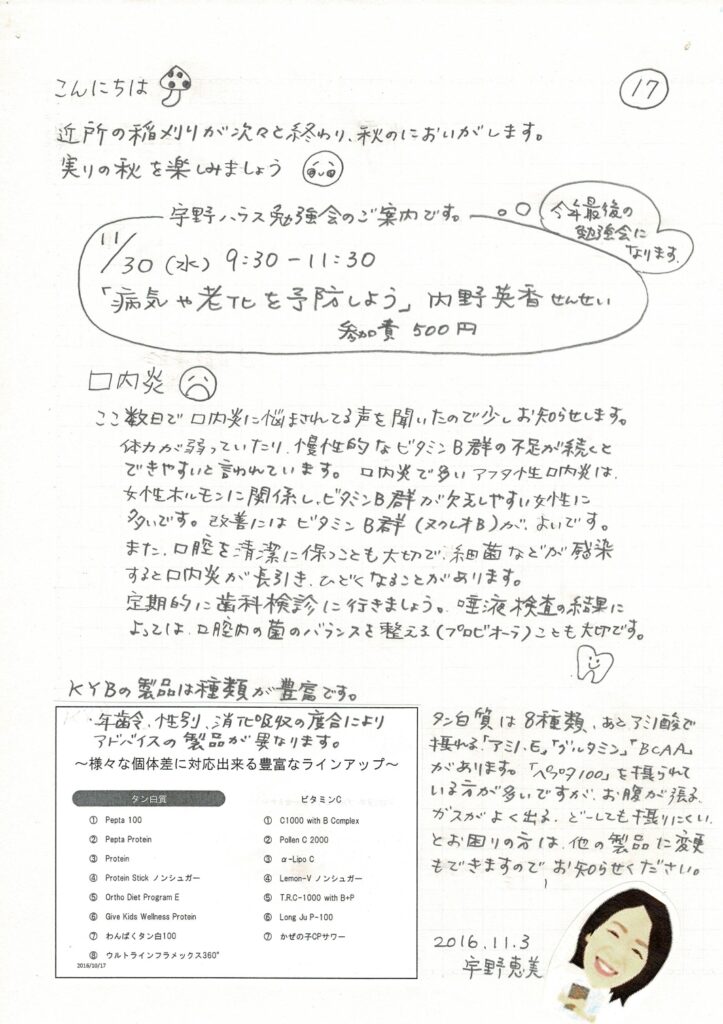 こんにちは
17
近所の稲刈りが次々と終わり、秋のにおいがします。
実りの秋を楽しみましょう
宇野ハウス勉強会のご案内です。
今年最後の
勉強会に
なります。
11/30(水) 9:30-11:30
「病気や老化を予防しよう」内野英香せんせい
参加費 500円
口内炎
ここ数日で口内炎に悩まされてる声を聞いたので少しお知らせします。
体力が弱っていたり、慢性的なビタミンB群の不足が続くと
できやすいと言われています。口内炎で多いアフタ性口内炎は、
女性ホルモンに関係し、ビタミンB群が欠乏しやすい女性に
多いです。改善にはビタミンB群(ヌクレオB)が、よいです。
また、口腔を清潔に保つことも大切で、細菌などが感染
すると口内炎が長引き、ひどくなることがあります。
定期的に歯科検診に行きましょう。唾液検査の結果に
よっては、口腔内の菌のバランスを整える(プロビオーラ)ことも大切です。
KYBの製品は種類が豊富です。
・年齢、性別、消化吸収の度合により
アドバイスの製品が異なります。
～様々な個体差に対応出来る豊富なラインアップ～
タン白質
① Pepta 100
② Pepta Protein
③ Protein
④ Protein Stick ノンシュガー
⑤ Ortho Diet Program E
⑥ Give Kids Wellness Protein
⑦ わんぱくタン白100
⑧ ウルトラインフラメックス360°
2016/10/17
ビタミンC
① C1000 with B Complex
② Pollen C 2000
③ α-Lipo C
④ Lemon-V ノンシュガー
⑤ T.R.C-1000 with B+P
⑥ Long Ju P-100
⑦ かぜの子CPサワー
タン白質は8種類、あとアミノ酸で
摂れる「アミノ・E」「グルタミン」「BCAA」
があります。「ペプタ100」を摂られて
いる方が多いですが、お腹が張る、
ガスがよく出る、どーしても摂りにくい、
とお困りの方は、他の製品に変更
もできますので お知らせください。
2016.11.3
宇野恵美